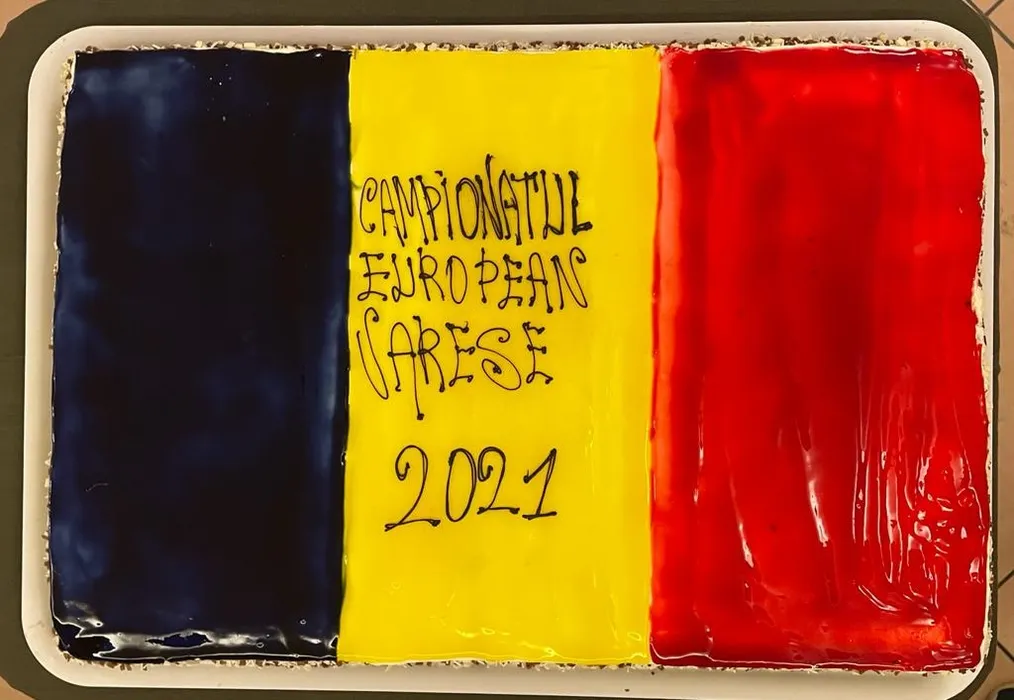 CAMPiONATUL
EUROPEAN
VARESE
2021